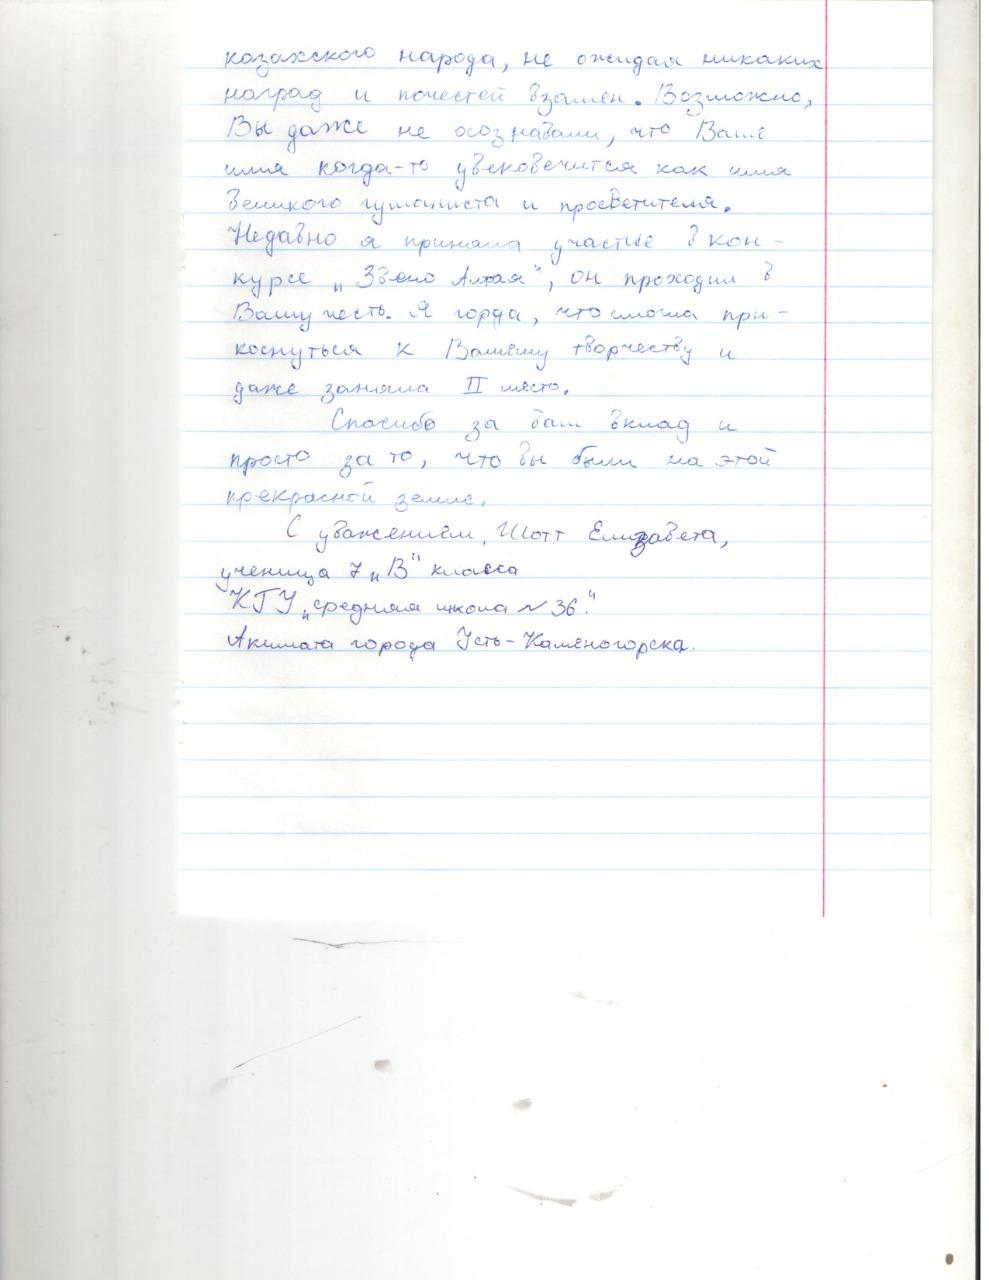 казахского народа, не ожидая никаких
наград и почестей взамен. Возможно,
Вы даже не осознавали, что Ваше
имя когда-то увековечится как имя
великого гуманиста и просветителя.
Недавно я приняла участие в кон-
курсе „Звено Алтая", он проходил в
Вашу честь. Я горда, что смогла при-
коснуться к Вашему творчеству и
даже заняла II место.
Спасибо за ваш вклад и
просто за то, что вы были на этой
прекрасной земле.
С уважением, Шотт Елизавета,
ученица 7 „В" класса
КГУ „средняя школа № 36."
Акимата города Усть-Каменогорска.